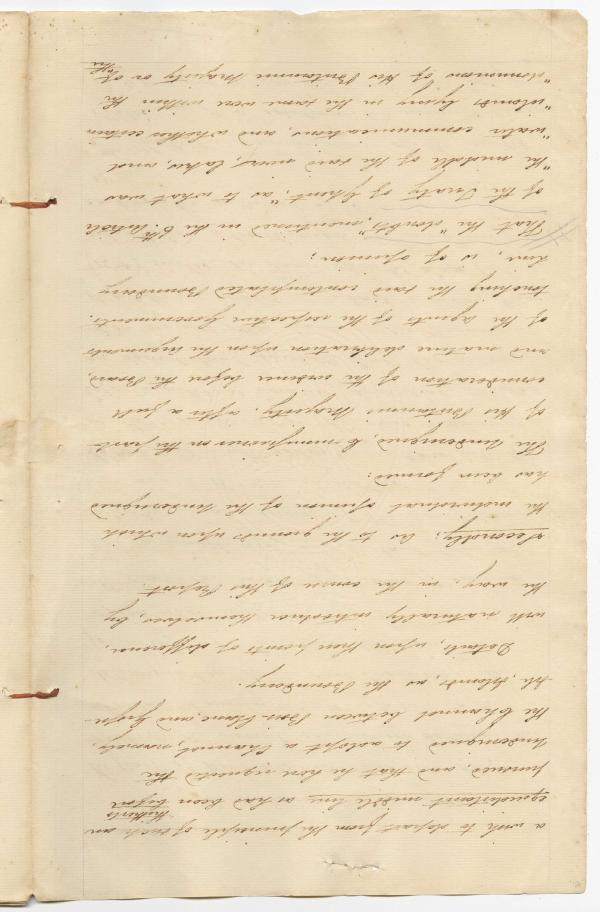 a wish to depart from the principle of such an
hitherto
equidistant middle line as had been before
pursued, and that he here the
Undersigned to adopt a Channel, namely,
the Channel between Bois Blanc and Grosse
Isle Islands, as the Boundary.
Details, upon these points of difference,
will naturally introduce themselves, by
the way, in the course of this Report.
Secondly; As to the grounds upon which
the individual opinion of the Undersigned
has been formed:
The Undersigned, Commissioner on the part
of His Britannic Majesty, after a full
consideration of the evidence before the Board,
and mature deliberation upon the arguments
of the Agents of the respective Governments
touching the said contemplated Boundary
line, is of opinion;
That the "doubts", mentioned in the 6th. Article
of the Treaty of Ghent, "as to what was
"the middle of the said rivers, lakes, and
"water communications, and whether certain
"islands lying in the same were within the
"dominions of His Britannic Majesty or of
the